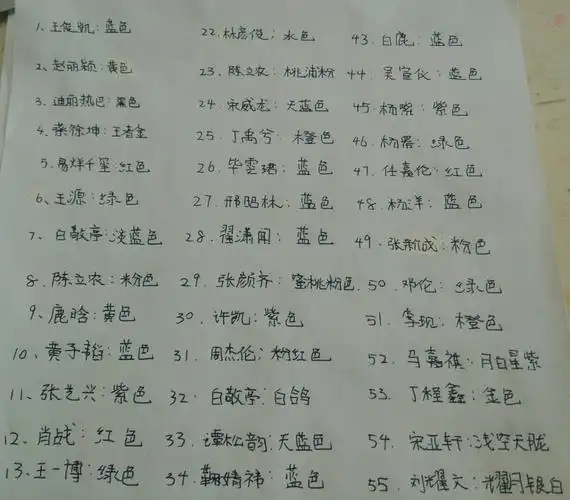 1、王俊凯：蓝色
2、赵丽颖：黄色
3、迪丽热巴：黑色
4、蔡徐坤：王者金
5、易烊千玺：红色
6、王源：绿色
7、白敬亭：淡蓝色
8、陈立农：粉色
9、鹿晗：黄色
10、黄子韬：蓝色
11、张艺兴：紫色
12、肖战：红色
13、王一博：绿色
22、林彦俊：水色
23、陈立农：桃浦粉
24、宋威龙：天蓝色
25、丁禹兮：橙色
26、毕雯珺：蓝色
27、邢昭林：蓝色
28、翟潇闻：蓝色
29、张颜齐：蜜桃粉色
30、许凯：紫色
31、周杰伦：粉红色
32、白敬亭：白鸽
33、谭松韵：天蓝色
34、鞠婧祎：蓝色
43、白鹿：蓝色
44、吴宣仪：蓝色
45、杨幂：紫色
46、杨幂：绿色
47、任嘉伦：红色
48、杨洋：蓝色
49、张新成：粉色
50、邓伦：绿色
51、李现：橙色
52、马嘉祺：月白星紫
53、丁程鑫：金色
54、宋亚轩：浅空天胧
55、刘耀文：耀月银白